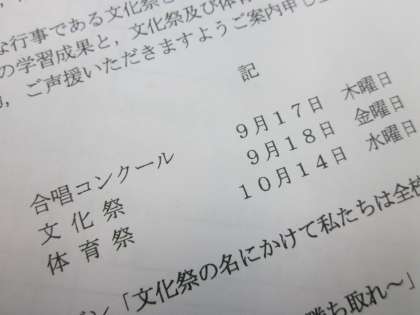 な行事である文化祭と
の学習成果と，文化祭及び体育
ご声援いただきますようご案内申し上
記
合唱コンクール　９月１７日　木曜日
文化祭　９月１８日　金曜日
体育祭　１０月１４日　水曜日
「文化祭の名にかけて私たちは全校
勝ち取れ～」